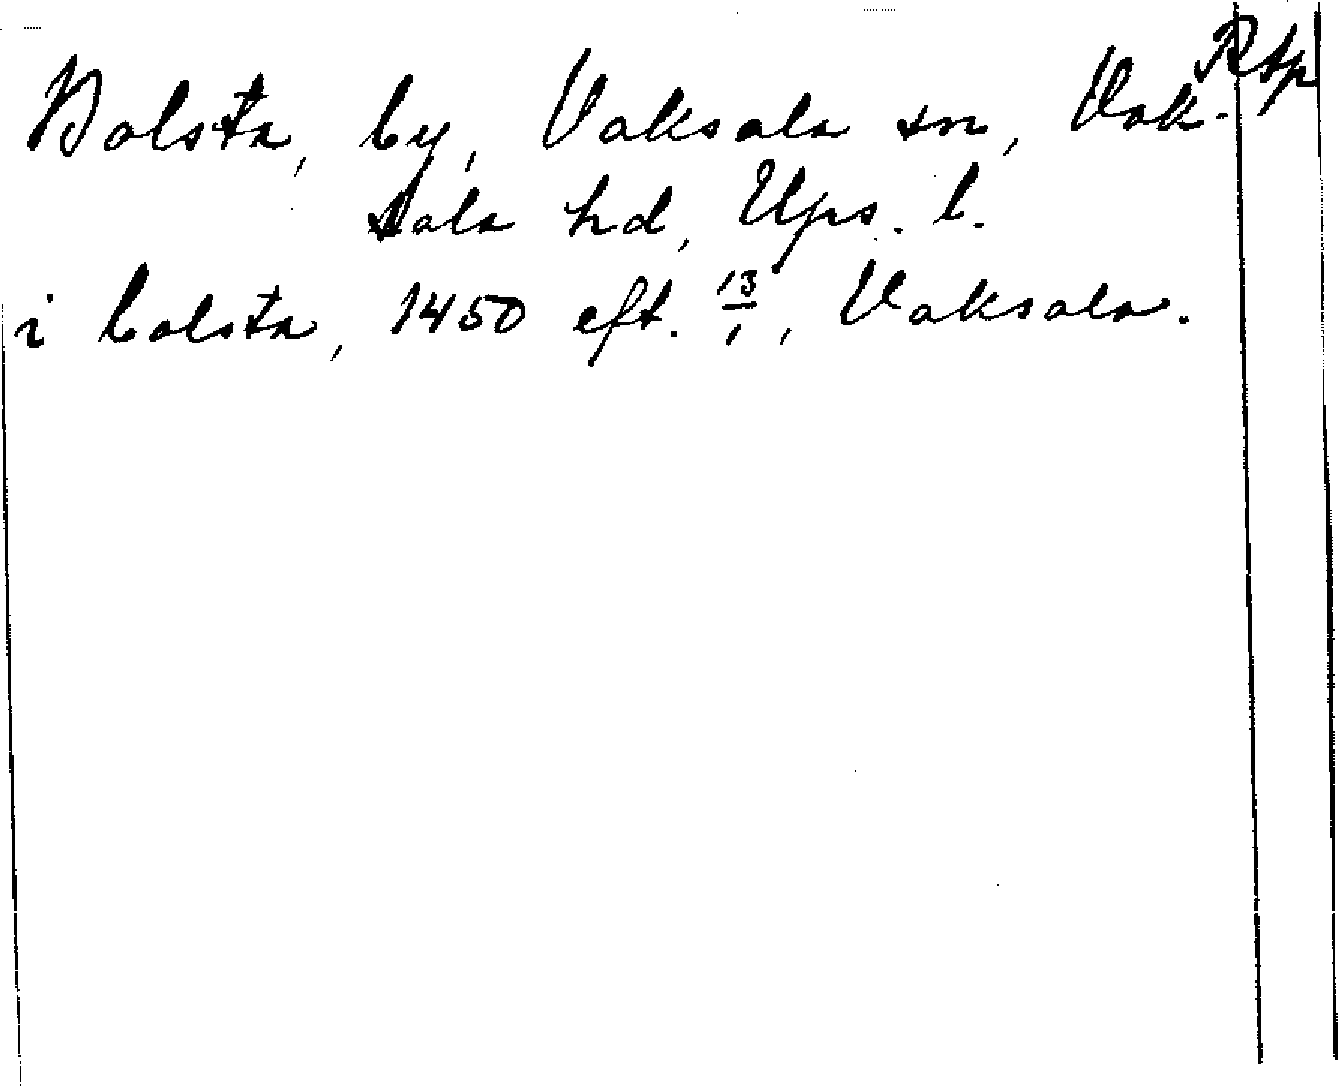 Rsp
Bolsta, by, Vaksala sn, Vak-
sala hd, Ups. l.
i bolsta, 1450 eft. 13/1, Vaksala.